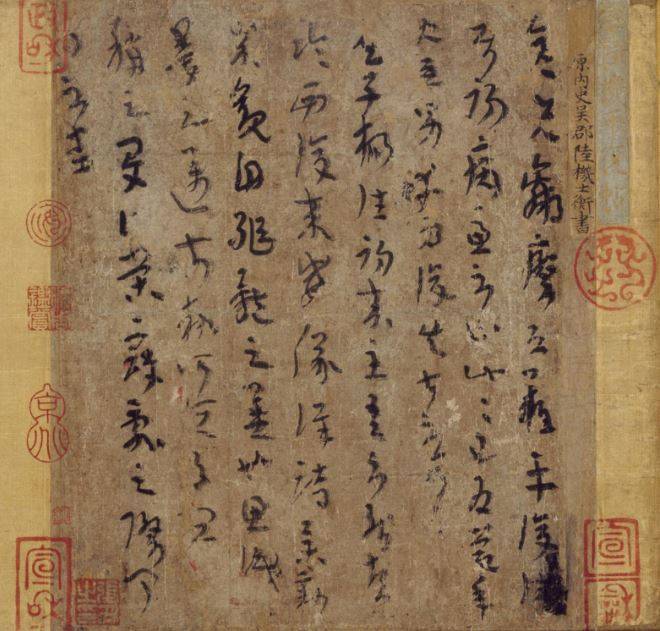 原内史吳郡陸機士衡書
先羸瘵恐難平復往屬
初病慮不止此此已為慶承
使唯男幸為復失前憂耳
吳子楊往初來主吾不能盡
臨西復來威儀詳跱舉動
成觀自軀體之美也思識
量之邁前執所恒有宜
稱之夏伯榮寇亂之際聞
問不悉
宣和
宣和